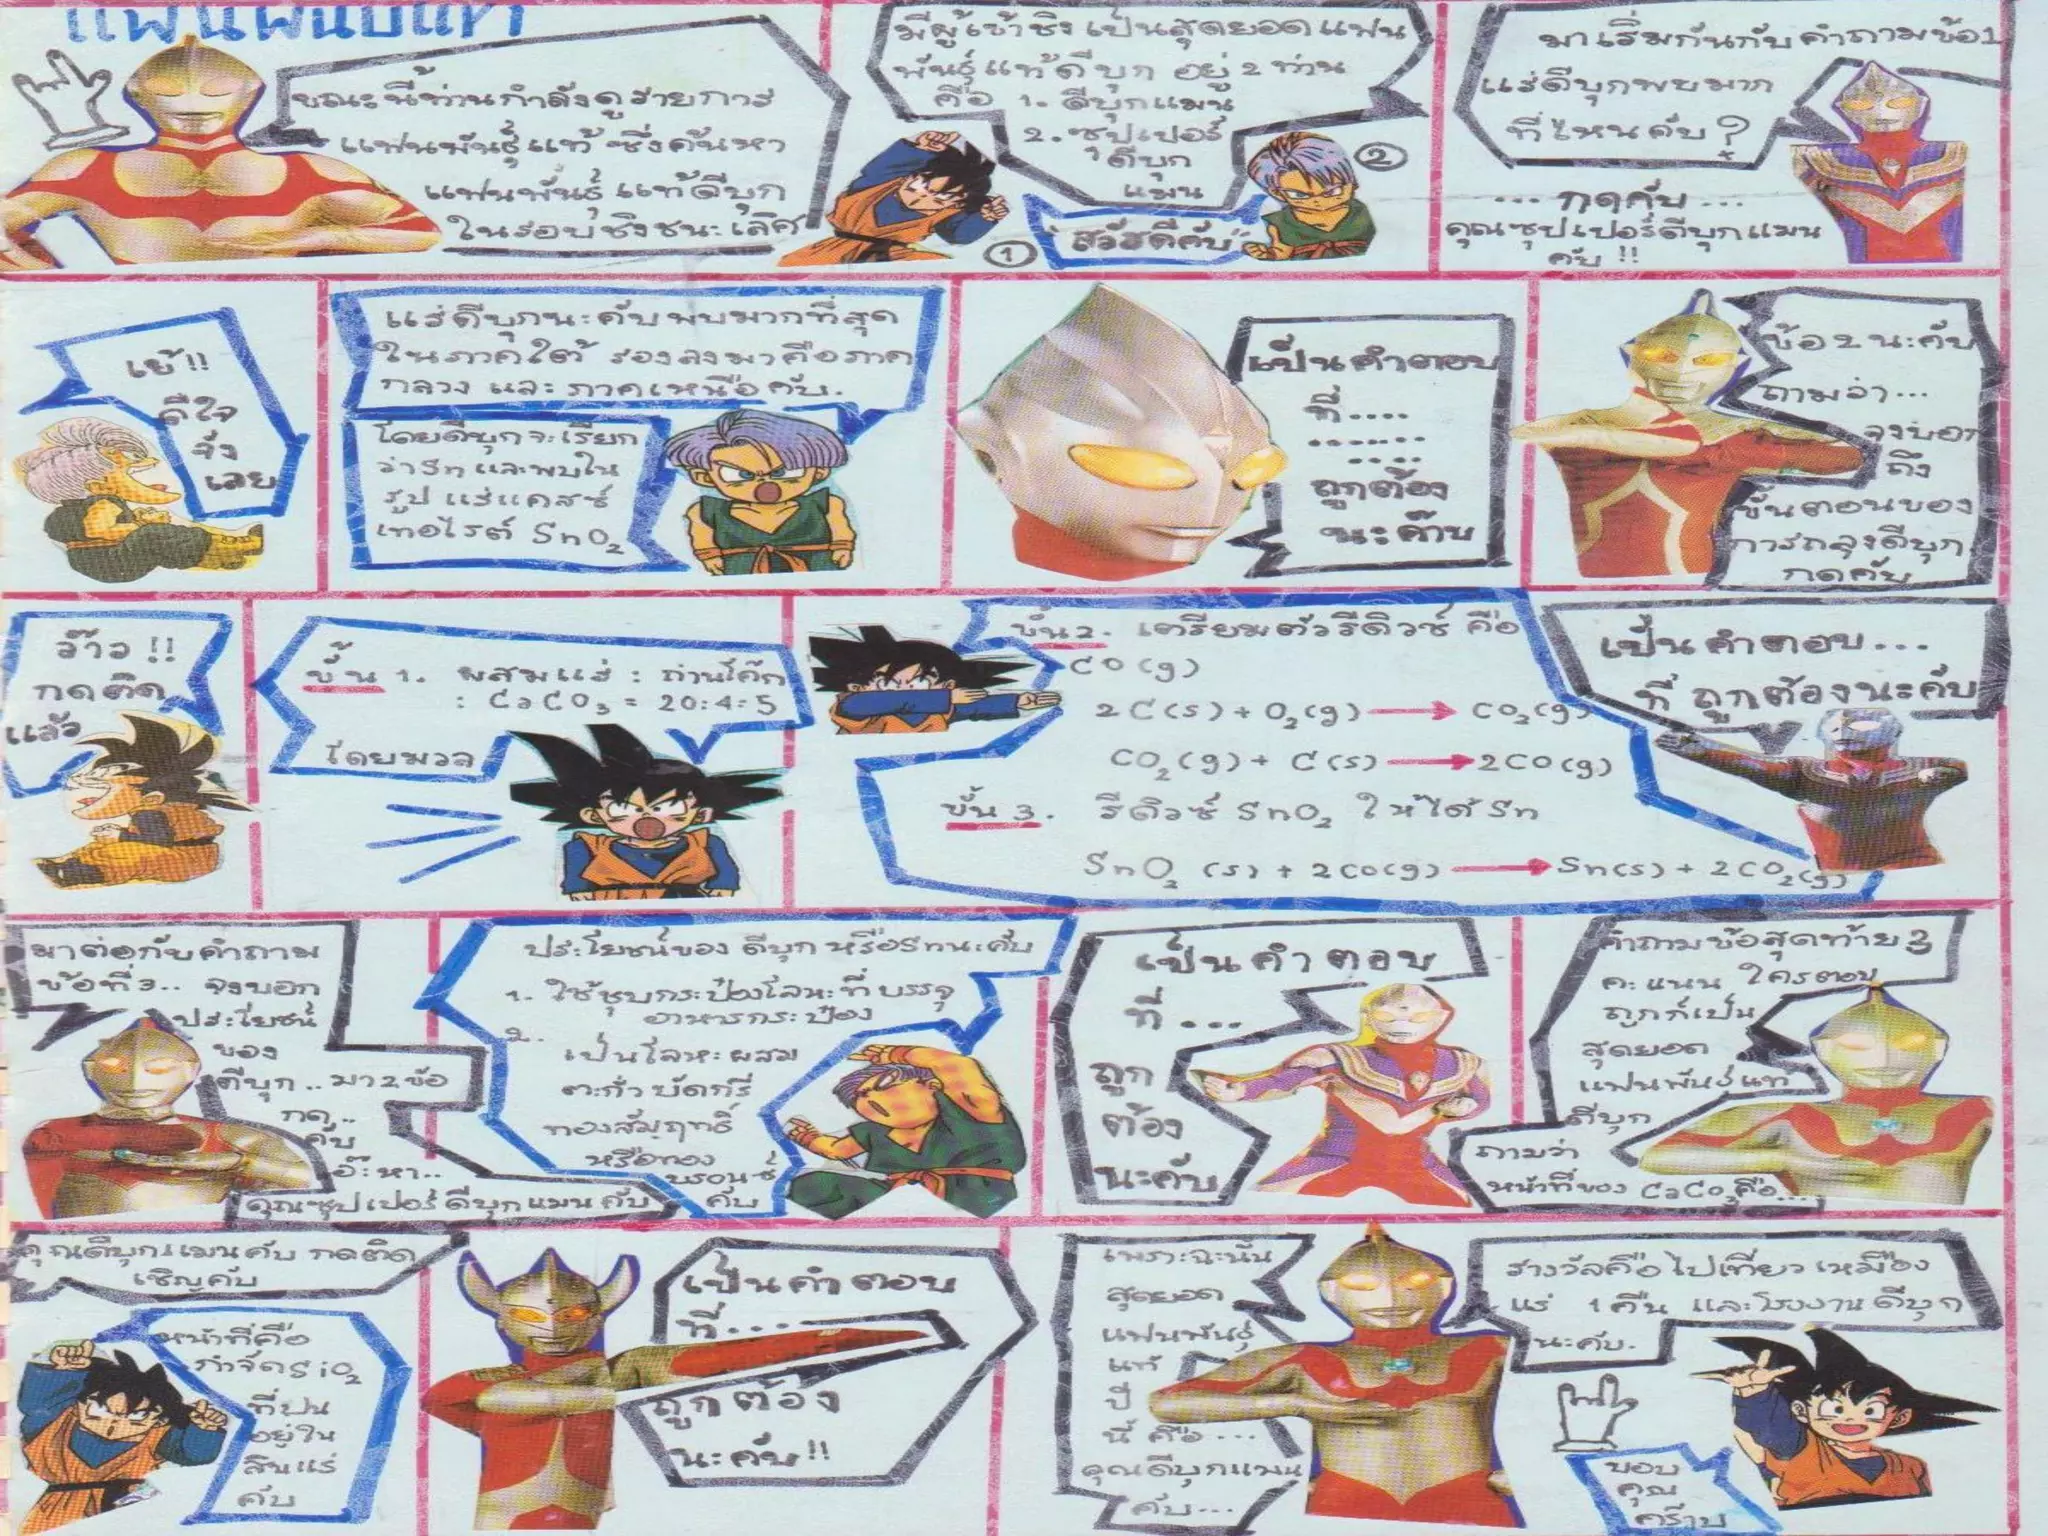 แฟนพันธุ์แท้
ขณะนี้ท่านกำลังดูรายการ
แฟนพันธุ์แท้ ซึ่งค้นหา
แฟนพันธุ์แท้ดีบุก
ในรอบชิงชนะเลิศ
มีผู้เข้าชิงเป็นสุดยอดแฟน
พันธุ์แท้ดีบุก อยู่ 2 ท่าน
คือ 1. ดีบุกแมน
2. ซุปเปอร์
ดีบุก
แมน
1
2
"สวัสดีคับ"
มาเริ่มกันกับคำถามข้อ1
แร่ดีบุกพบมาก
ที่ไหนคับ?
... กดคับ ...
คุณซุปเปอร์ดีบุกแมน
คับ !!
เย้!!
ดีใจ
จัง
เลย
แร่ดีบุกนะคับพบมากที่สุด
ในภาคใต้ รองลงมาคือภาค
กลาง และ ภาคเหนือคับ.
โดยดีบุกจะเรียก
ว่าSnและพบใน
รูป แร่แคสซิ
เทอไรต์ SnO2
เป็นคำตอบ
ที่....
.......
....
ถูกต้อง
นะค้าบ
ข้อ 2 นะคับ
ถามว่า...
จงบอก
ถึง
ขั้นตอนของ
การถลุงดีบุก
กดคับ
ว๊าว !!
กดติด
แล้ว
ขั้น 1. ผสมแร่ : ถ่านโค๊ก
: CaCO3 = 20:4:5
โดยมวล
ขั้น2. เตรียมตัวรีดิวซ์ คือ
CO(g)
2C(s) + O2(g) → CO2(g)
CO2(g) + C(s) → 2CO(g)
ขั้น 3. รีดิวซ์ SnO2 ให้ได้ Sn
SnO2 (s) + 2CO(g) → Sn(s) + 2CO2(g)
เป็นคำตอบ...
ที่ ถูกต้องนะคับ
มาต่อกับคำถาม
ข้อที่3.. จงบอก
ประโยชน์
ของ
ดีบุก.. มา2ข้อ
กด..
คับ
อ๊ะหา..
คุณซุปเปอร์ดีบุกแมนคับ
ประโยชน์ของ ดีบุก หรือSnนะคับ
1. ใช้ชุบกระป๋องโลหะที่บรรจุ
อาหารกระป๋อง
2. เป็นโลหะผสม
ตะกั่ว บัดกรี
ทองสัมฤทธิ์
หรือทอง
บรอนซ์
คับ
เป็นคำตอบ
ที่...
ถูก
ต้อง
นะคับ
คำถามข้อสุดท้าย 3
คะแนน ใครตอบ
ถูกก็เป็น
สุดยอด
แฟนพันธุ์แท้
ดีบุก
ถามว่า
หน้าที่ของ CaCO3คือ...
คุณดีบุกแมนคับ กดติด
เชิญคับ
หน้าที่คือ
กำจัดSiO2
ที่ปน
อยู่ใน
สินแร่
คับ
เป็นคำตอบ
ที่...
ถูกต้อง
นะคับ!!
เพราะฉะนั้น
สุดยอด
แฟนพันธุ์
แท้
ปี
นี้ คือ...
คุณดีบุกแมน
คับ...
รางวัลคือไปเที่ยวเหมือง
แร่ 1 คืน และโรงงานดีบุก
นะคับ.
ขอบ
คุณ
คร๊าบ